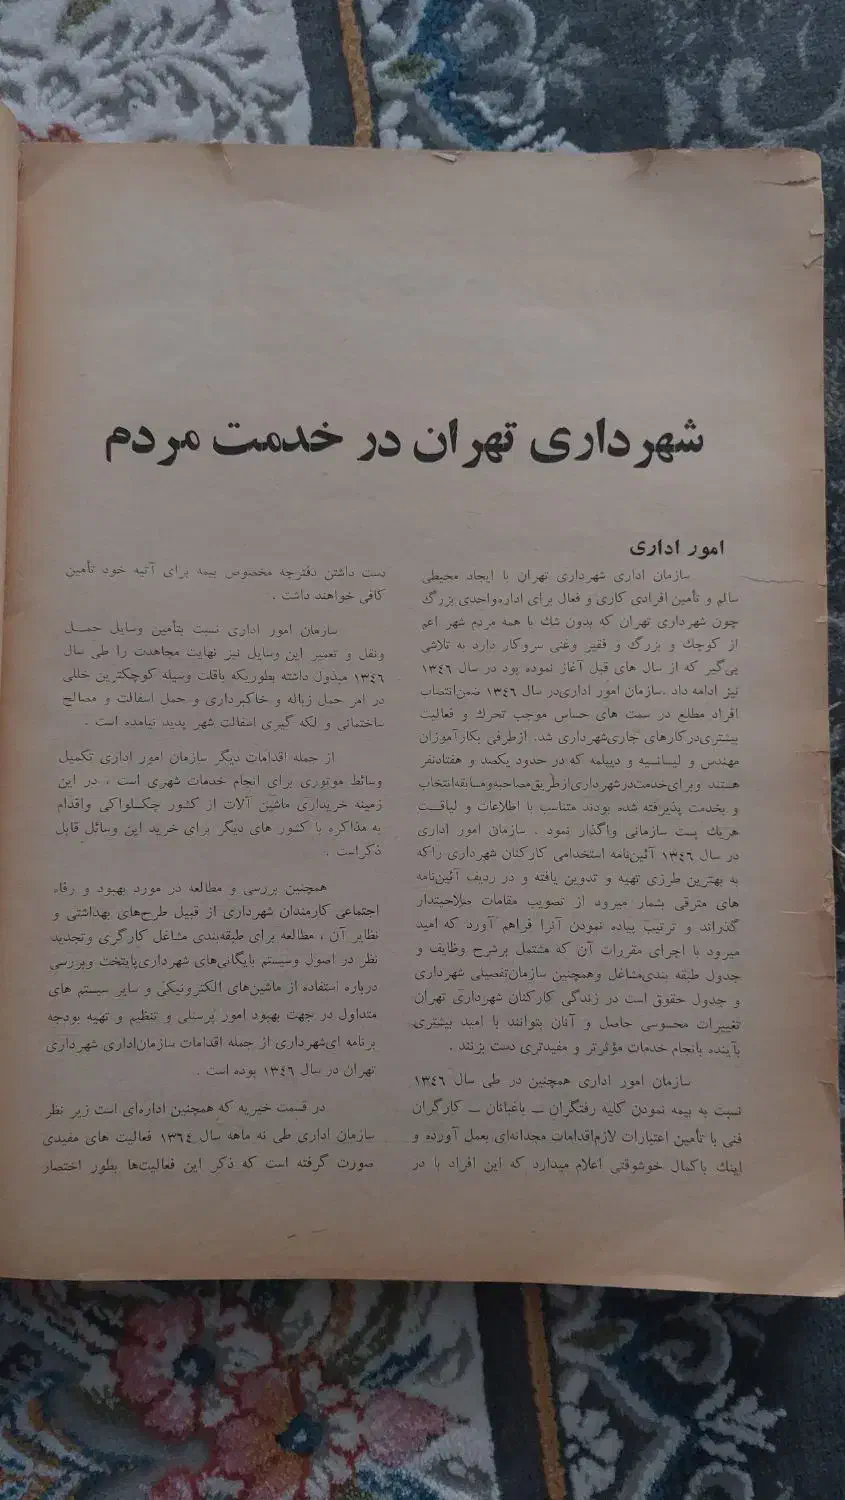 شهرداری تهران در خدمت مردم
امور اداری
سازمان اداری شهرداری تهران با ایجاد محیطی
سالم و تأمین افرادی کاری و فعال برای اداره‌واحدی بزرگ
چون شهرداری تهران که بدون شك با همه مردم شهر اعم
از کوچك و بزرگ و فقیر وغنی سروکار دارد به تلاشی
پی‌گیر که از سال های قبل آغاز نموده بود در سال ۱۳٤٦
نیز ادامه داد .سازمان امور اداری‌در سال ۱۳٤٦ ضمن‌انتصاب
افراد مطلع در سمت های حساس موجب تحرك و فعالیت
بیشتری‌درکارهای جاری‌شهرداری شد. ازطرفی بکارآموزان
مهندس و لیسانسیه و دیپلمه که در حدود یکصد و هفتادنفر
هستند وبرای‌خدمت‌درشهرداری‌ازطریق‌مصاحبه‌ومسابقه‌انتخاب
و بخدمت پذیرفته شده بودند متناسب با اطلاعات و لیاقت
هریك پست سازمانی واگذار نمود . سازمان امور اداری
در سال ۱۳٤٦ آئین‌نامه استخدامی کارکنان شهرداری راکه
به بهترین طرزی تهیه و تدوین یافته و در ردیف آئین‌نامه
های مترقی بشمار میرود از تصویب مقامات صلاحیتدار
گذراند و ترتیب پیاده نمودن آنرا فراهم آورد که امید
میرود با اجرای مقررات آن که مشتمل برشرح وظایف و
جدول طبقه بندی‌مشاغل وهمچنین سازمان‌تفصیلی شهرداری
و جدول حقوق است در زندگی کارکنان شهرداری تهران
تغییرات محسوسی حاصل و آنان بتوانند با امید بیشتری
بآینده بانجام خدمات مؤثرتر و مفیدتری دست بزنند .
سازمان امور اداری همچنین در طی سال ۱۳٤٦
نسبت به بیمه نمودن کلیه رفتگران ــ باغبانان ــ کارگران
فنی با تأمین اعتبارات لازم‌اقدامات مجدانه‌ای بعمل آورده و
اینك باکمال خوشوقتی اعلام میدارد که این افراد با در
دست داشتن دفترچه مخصوص بیمه برای آتیه خود تأمین
کافی خواهند داشت .
سازمان امور اداری نسبت بتأمین وسایل حمــل
ونقل و تعمیر این وسایل نیز نهایت مجاهدت را طی سال
۱۳٤٦ مبذول داشته بطوریکه باقلت وسیله کوچکترین خللی
در امر حمل زباله و خاکبرداری و حمل اسفالت و مصالح
ساختمانی و لکه گیری اسفالت شهر پدید نیامده است .
از جمله اقدامات دیگر سازمان امور اداری تکمیل
وسائط موتوری برای انجام خدمات شهری است ، در این
زمینه خریداری ماشین آلات از کشور چکسلواکی واقدام
به مذاکره با کشور های دیگر برای خرید این وسائل قابل
ذکراست .
همچنین بررسی و مطالعه در مورد بهبود و رفاه
اجتماعی کارمندان شهرداری از قبیل طرح‌های بهداشتی و
نظایر آن ، مطالعه برای طبقه‌بندی مشاغل کارگری وتجدید
نظر در اصول وسیستم بایگانی‌های شهرداری‌پایتخت وبررسی
درباره استفاده از ماشین‌های الکترونیکی و سایر سیستم های
متداول در جهت بهبود امور پرسنلی و تنظیم و تهیه بودجه
برنامه ای‌شهرداری از جمله اقدامات سازمان‌اداری شهرداری
تهران در سال ۱۳٤٦ بوده است .
در قسمت خیریه که همچنین اداره‌ای است زیر نظر
سازمان اداری طی نه ماهه سال ۱۳٦٤ فعالیت های مفیدی
صورت گرفته است که ذکر این فعالیت‌ها بطور اختصار